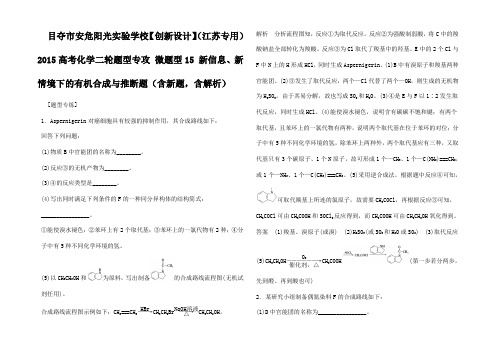 目夺市安危阳光实验学校【创新设计】（江苏专用）
2015高考化学二轮题型专攻 微题型15 新信息、新
情境下的有机合成与推断题（含新题，含解析）
【题型专练】
1．Aspernigerin对癌细胞具有较强的抑制作用，其合成路线如下：
回答下列问题：
(1)物质B中官能团的名称为________。
(2)反应③的无机产物为________。
(3)④的反应类型是________。
(4)写出同时满足下列条件的F的一种同分异构体的结构简式：
________________。
①能使溴水褪色；②苯环上有2个取代基；③苯环上的一氯代物有2种；④分
子中有5种不同化学环境的氢。
(5)以CH3CH2OH和为原料，写出制备的合成路线流程图(无机试
剂任用)。
合成路线流程图示例如下：CH2===CH2 HBr→CH3CH2Br NaOH溶液△→CH3CH2OH。
解析 分析流程图知，反应①为取代反应。反应②为强酸制弱酸，将C中的羧
酸钠盐全部转化为羧酸。反应③为Cl取代了羧基中的羟基。E中的2个Cl与
F中N上的H形成HCl，同时生成Aspernigerin。(1)B中有溴原子和羧基两种
官能团。(2)③发生了取代反应，两个—Cl代替了两个—OH。则生成的无机物
为H2SO3，由于其易分解，故也写成SO2和H2O。(3)④是E与F以1∶2发生取
代反应，同时生成HCl。(4)能使溴水褪色，说明含有碳碳不饱和键；有两个
取代基，且苯环上的一氯代物有两种，说明两个取代基在位于苯环的对位，分
子中有5种不同化学环境的氢，除苯环上两种外，两个取代基应有三种，又取
代基只有3个碳原子、1个N原子，故可形成1个—CH3、1个—C(NH2)===CH2
或1个—NH2、1个—C(CH3)===CH2。(5)采用逆合成法。根据题中反应④可知，
可取代羰基上所连的氯原子，故需要CH3COCl，再根据反应③可知，
CH3COCl可由CH3COOH和SOCl2反应得到，而CH3COOH可由CH3CH2OH氧化得到。
答案 (1)羧基、溴原子(或溴) (2)H2SO3(或SO2和H2O或SO2) (3)取代反应
(5)CH3CH2OH O2催化剂，△→CH3COOH SOCl2→CH3COCl (第一步若分两步，
先到醛、再到酸也可)
2．某研究小组制备偶氮染料F的合成路线如下：
(1)D中官能团的名称为________________。